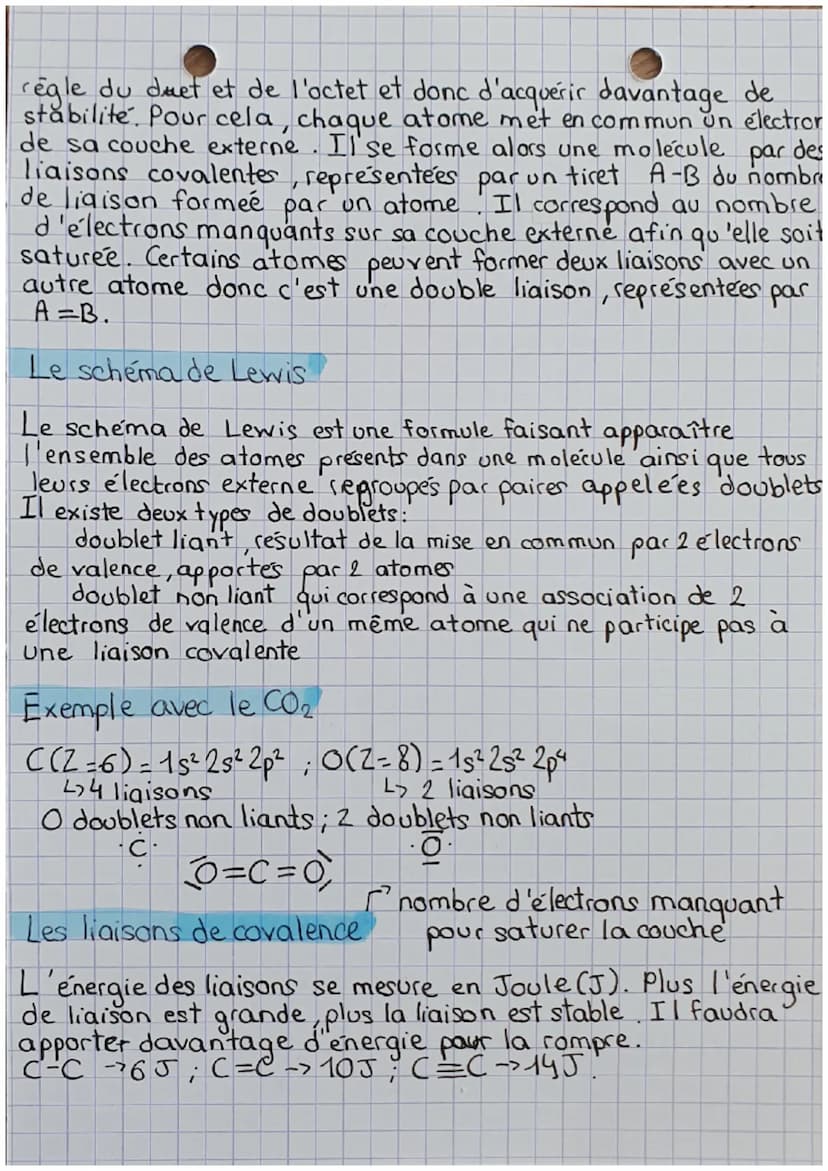 règle du duet et de l'octet et donc d'acquérir davantage de
stabilité. Pour cela, chaque atome met en commun un électron
de sa couche externe. Il se forme alors une molécule par des
liaisons covalentes, représentées par un tiret A-B du nombre
de liaison formeé par un atome. Il correspond au nombre
d'électrons manquants sur sa couche externe afin qu'elle soit
saturée. Certains atomes peuvent former deux liaisons avec un
autre atome donc c'est une double liaison, représentées par
A=B.
Le schéma de Lewis
Le schéma de Lewis est une formule faisant apparaître
l'ensemble des atomes présents dans une molécule ainsi que tous
leurs électrons externe regroupés par paires appelées doublets
Il existe deux types de doublets:
doublet liant, résultat de la mise en commun par 2 électrons
de valence, apportés par 2 atomes
doublet non liant qui correspond à une association de 2
électrons de valence d'un même atome qui ne participe pas à
une liaison covalente
Exemple avec le CO₂
C(Z=6)=1s² 2s² 2p² ; O(Z=8)=1s² 2s² 2p⁴
↳4 liaisons ↳ 2 liaisons
0 doublets non liants; 2 doublets non liants
·C· ·O·
O=C=O
↱ nombre d'électrons manquant
Les liaisons de covalence pour saturer la couche
L'énergie des liaisons se mesure en Joule(J). Plus l'énergie
de liaison est grande, plus la liaison est stable. Il faudra
apporter davantage d'énergie pour la rompre.
C-C →6J ; C=C → 10J ; C≡C →14J.